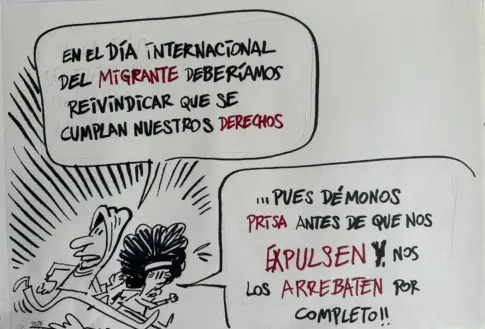 EN EL DÍA INTERNACIONAL
DEL MIGRANTE DEBERÍAMOS
REIVINDICAR QUE SE
CUMPLAN NUESTROS DERECHOS
...PUES DÉMONOS
PRISA ANTES DE QUE NOS
EXPULSEN Y NOS
LOS ARREBATEN POR
COMPLETO!!